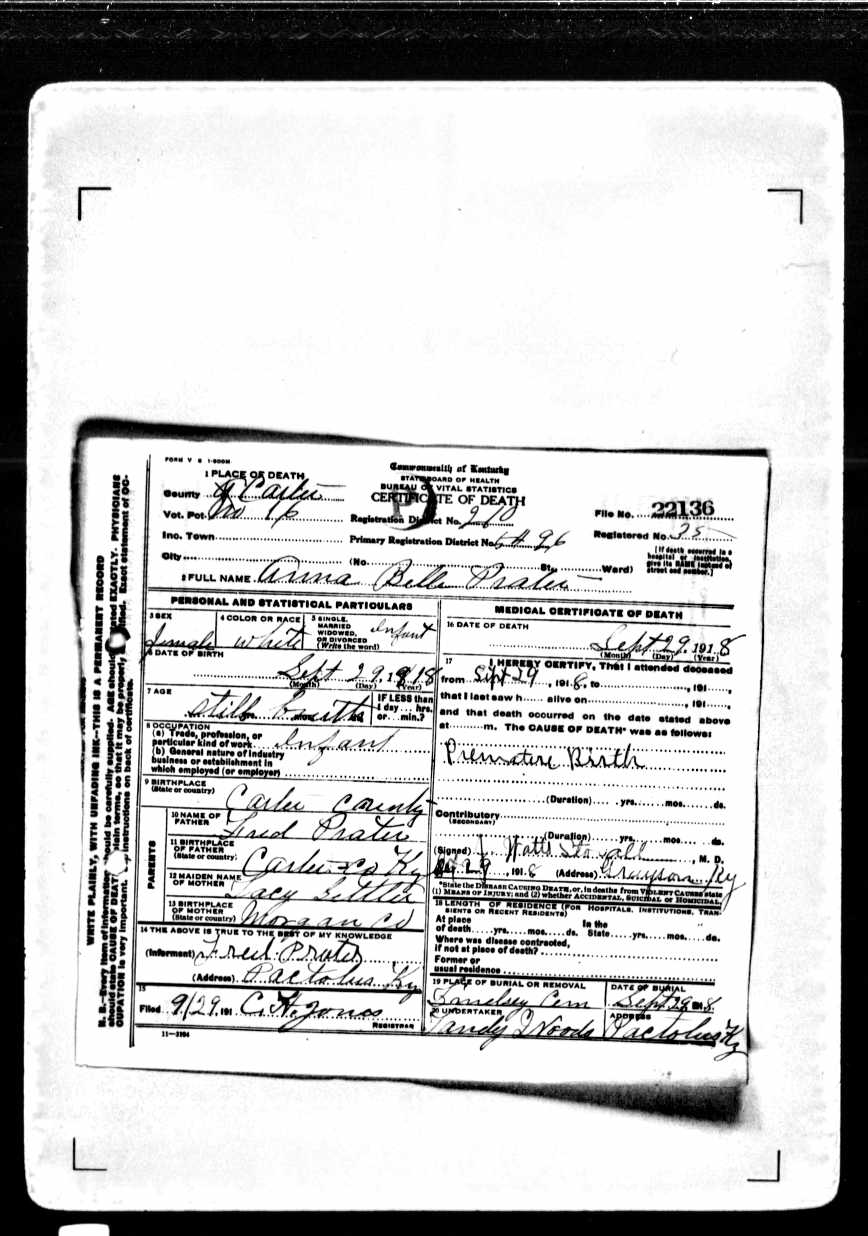 FORM V S 1-500M
Commonwealth of Kentucky
STATE BOARD OF HEALTH
BUREAU OF VITAL STATISTICS
CERTIFICATE OF DEATH
1 PLACE OF DEATH
County of Carter
Vot. Pct. No 16
Inc. Town
City
Registration District No. 210
Primary Registration District No.
(No. St., Ward)
File No. 22136
Registered No. 35
[If death occurred in a hospital or institution, give its NAME instead of street and number.]
2 FULL NAME Anna Belle Prater
PERSONAL AND STATISTICAL PARTICULARS
3 SEX
Female
4 COLOR OR RACE
White
5 SINGLE, MARRIED WIDOWED, OR DIVORCED (Write the word)
Infant
6 DATE OF BIRTH
Sept 29, 1918
(Month) (Day) (Year)
7 AGE
still birth
IF LESS than 1 day ... hrs. or ... min.?
8 OCCUPATION
(a) Trade, profession, or particular kind of work Infant
(b) General nature of industry business or establishment in which employed (or employer)
9 BIRTHPLACE
(State or country)
Carter County
PARENTS
10 NAME OF FATHER
Fred Prater
11 BIRTHPLACE OF FATHER
(State or country)
Carter Co Ky
12 MAIDEN NAME OF MOTHER
13 BIRTHPLACE OF MOTHER
(State or country)
Morgan Co
14 THE ABOVE IS TRUE TO THE BEST OF MY KNOWLEDGE
(Informant) Fred Prater
(Address) Pactolus Ky
15
Filed 9/29, 191 C. H. Jones
REGISTRAR
11-3184
MEDICAL CERTIFICATE OF DEATH
16 DATE OF DEATH
Sept 29, 1918
(Month) (Day) (Year)
17 I HEREBY CERTIFY, That I attended deceased
from Sept 29, 1918, to , 191 ,
that I last saw h alive on , 191 ,
and that death occurred on the date stated above
at m. The CAUSE OF DEATH* was as follows:
Premature Birth
(Duration) yrs. mos. ds.
Contributory
(SECONDARY)
(Duration) yrs. mos. ds.
(Signed) J. Watts Stovall, M. D.
29, 1918 (Address) Grayson Ky
*State the DISEASE CAUSING DEATH, or, in deaths from VIOLENT CAUSES state (1) MEANS OF INJURY; and (2) whether ACCIDENTAL, SUICIDAL or HOMICIDAL.
18 LENGTH OF RESIDENCE (FOR HOSPITALS, INSTITUTIONS, TRANSIENTS OR RECENT RESIDENTS)
At place of death yrs. mos. ds. In the State yrs. mos. ds.
Where was disease contracted,
if not at place of death?
Former or
usual residence
19 PLACE OF BURIAL OR REMOVAL
Cem
DATE OF BURIAL
Sept 29 1918
20 UNDERTAKER
Woods
ADDRESS
Pactolus Ky
WRITE PLAINLY, WITH UNFADING INK—THIS IS A PERMANENT RECORD